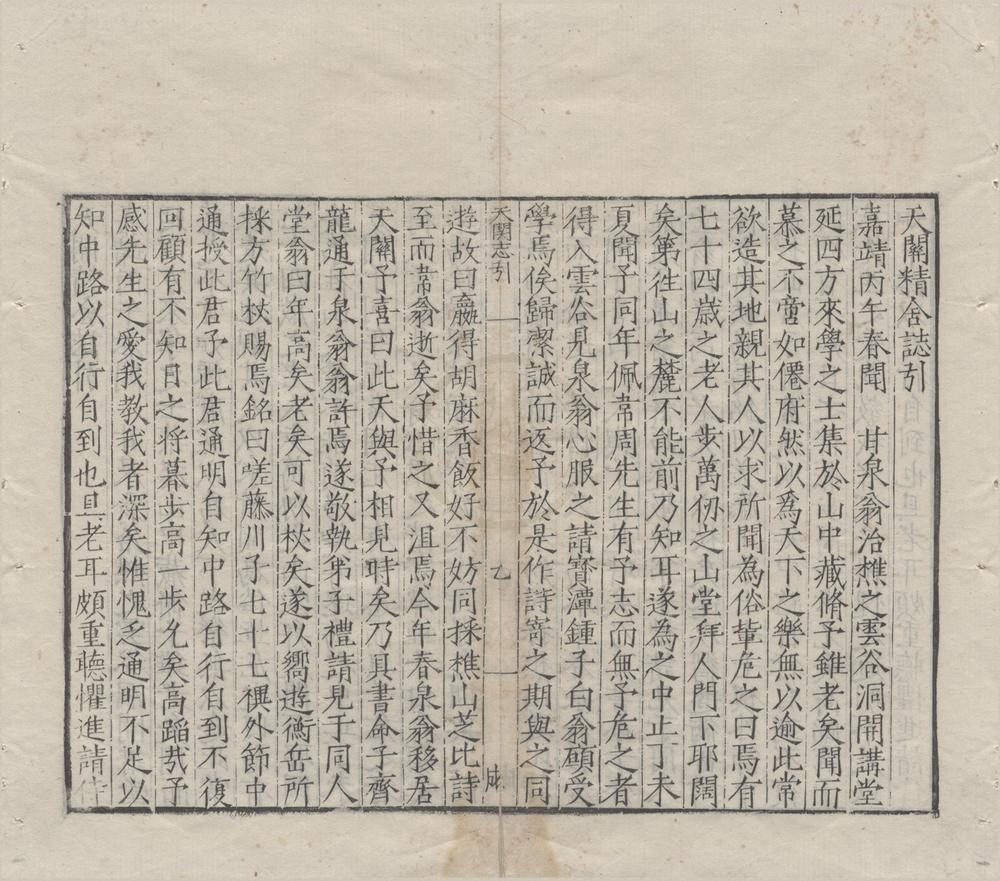 天關精舍誌引
嘉靖丙午春聞　甘泉翁治樵之雲谷洞開講堂
延四方來學之士集於山中藏脩予雖老矣聞而
慕之不啻如僊府然以爲天下之樂無以逾此常
欲造其地親其人以求所聞為俗輩危之曰焉有
七十四歲之老人步萬仞之山堂拜人門下耶闊
矣第徃山之麓不能前乃知耳遂為之中止丁未
夏聞予同年佩韋周先生有予志而無予危之者
得入雲谷見泉翁心服之請寳潭鍾子白翁願受
學焉俟歸潔誠而返予於是作詩寄之期與之同
天関志引
乙
成
遊故曰贏得胡麻香飯好不妨同採樵山芝比詩
至而韋翁逝矣予惜之又沮焉今年春泉翁移居
天關予喜曰此天與予相見時矣乃具書命子齊
龍通于泉翁翁許焉遂敬執弟子禮請見于同人
堂翁曰年高矣老矣可以杖矣遂以嚮遊衡岳所
採方竹杖賜焉銘曰嗟藤川子七十七禩外節中
通授此君予此君通明自知中路自行自到不復
回顧有不知日之将暮步高一步允矣高蹈㢤予
感先生之愛我教我者深矣惟愧乏通明不足以
知中路以自行自到也且老耳頗重聽懼進請